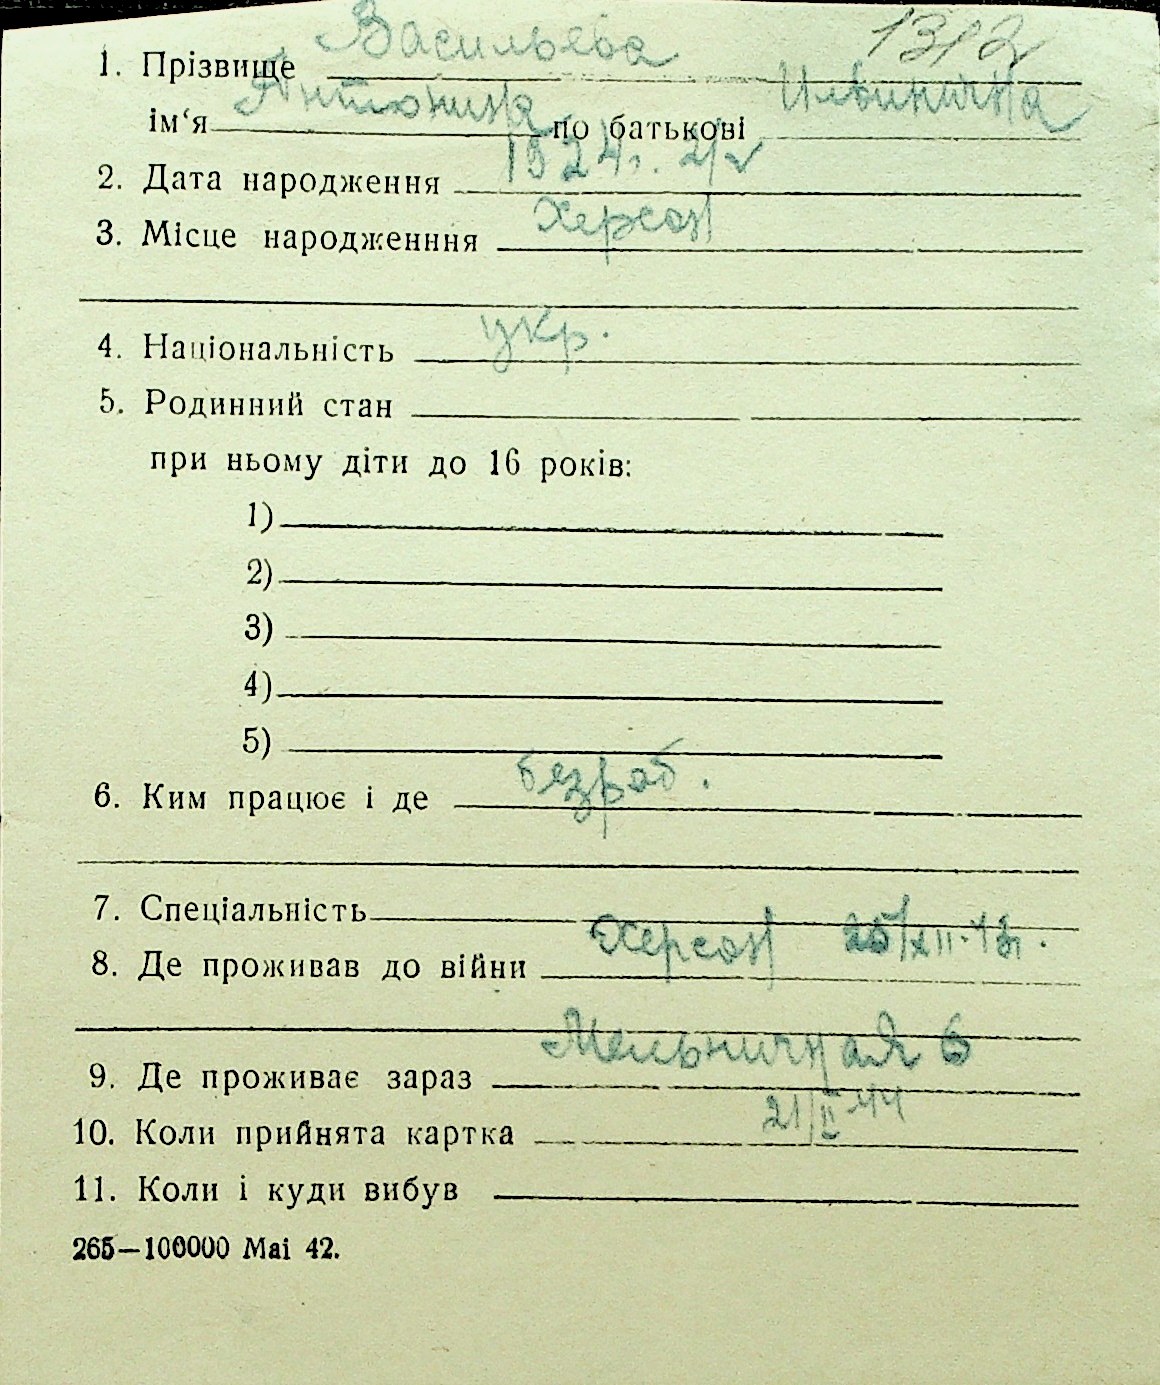 1312
1. Прізвище Васильева
ім‘я Антонина по батькові Ильинична
2. Дата народження 1924г. 2/V
3. Місце народженння Херсон
4. Національність укр.
5. Родинний стан
при ньому діти до 16 років:
1)
2)
3)
4)
5)
6. Ким працює і де безраб.
7. Спеціальність
8. Де проживав до війни Херсон 25/XII-43г.
9. Де проживає зараз Мельничная 6
10. Коли прийнята картка 21/II-44
11. Коли і куди вибув
265—100000 Mai 42.